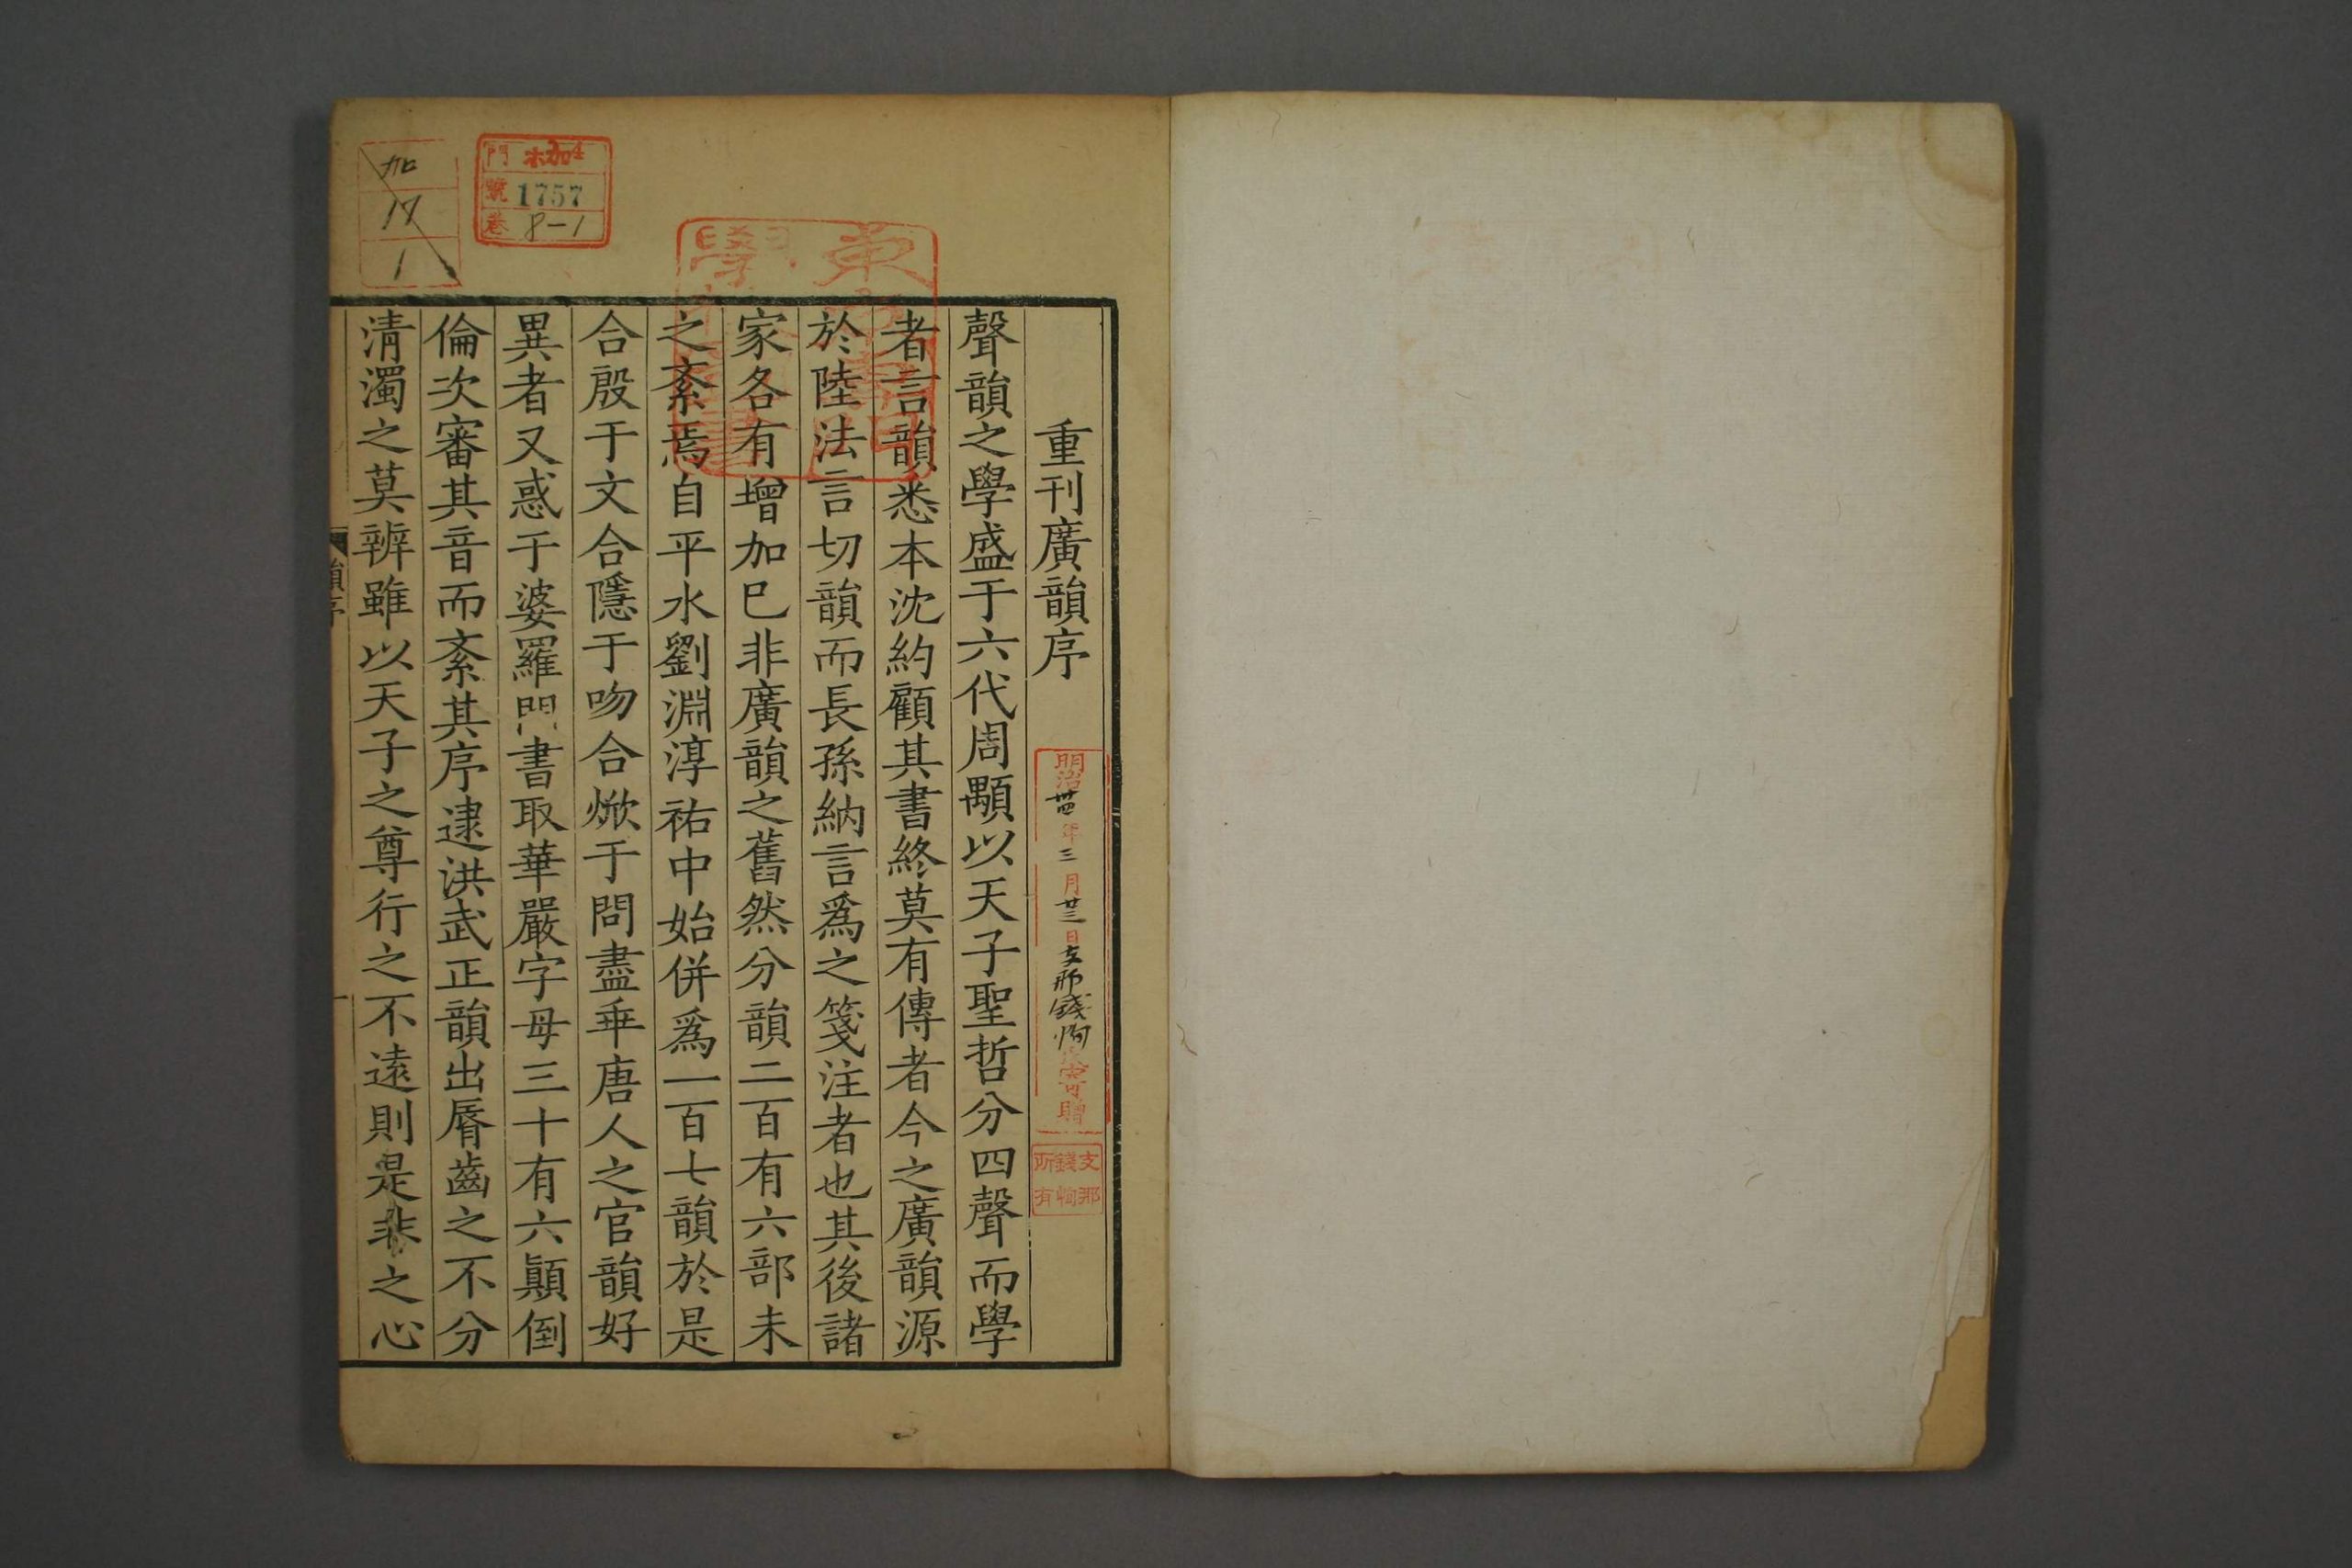 重刊廣韻序
聲韻之學盛于六代周顒以天子聖哲分四聲而學
者言韻悉本沈約顧其書終莫有傳者今之廣韻源
於陸法言切韻而長孫納言爲之箋注者也其後諸
家各有增加巳非廣韻之舊然分韻二百有六部未
之紊焉自平水劉淵淳祐中始併爲一百七韻於是
合殷于文合隱于吻合焮于問盡乖唐人之官韻好
異者又惑于婆羅門書取華嚴字母三十有六顚倒
倫次審其音而紊其序逮洪武正韻出脣齒之不分
清濁之莫辨雖以天子之尊行之不遠則是非之心
明治卅四年三月廿三日支那錢恂氏寄贈
支那
錢恂
所有
門
號 1757
卷 8-1
加
17
1
韻序
一